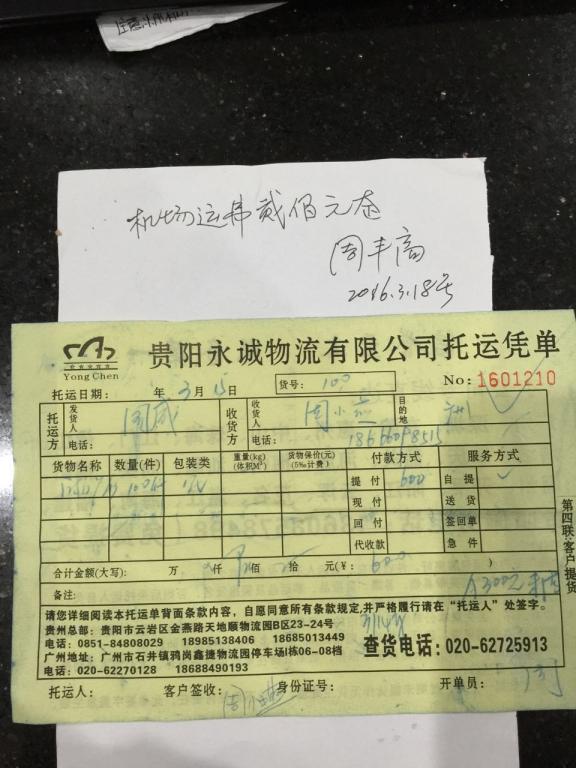 机场运费贰佰元整
周丰高
2016.3.18号
Yong Chen
贵阳永诚物流有限公司托运凭单
托运日期: 年 3 月 15 日 货号: 100 No: 1601210
托运方 发货人 周 收货方 收货人 周小燕 目的地 州
电话: 电话: 18666098515
货物名称 数量(件) 包装类 重量(kg)(体积M³) 货物保价(元)(5‰计费) 付款方式 服务方式
100件 提付 600 自提 ✓
现付 送货
回付 签回单
代收款 急件
合计金额(大写): 万 仟 佰 拾 元(¥: 600 )
备注: 300元
请您详细阅读本托运单背面条款内容,自愿同意所有条款规定,并严格履行请在“托运人”处签字。
贵州总部: 贵阳市云岩区金燕路天地顺物流园B区23-24号
电话: 0851-84808029 18985138406 18685013449
广州地址: 广州市石井镇鸦岗鑫捷物流园停车场I栋06-08档
电话: 020-62270128 18688490193
查货电话: 020-62725913
托运人: 客户签收: 周小燕 身份证号: 开单员:
第四联:客户提货